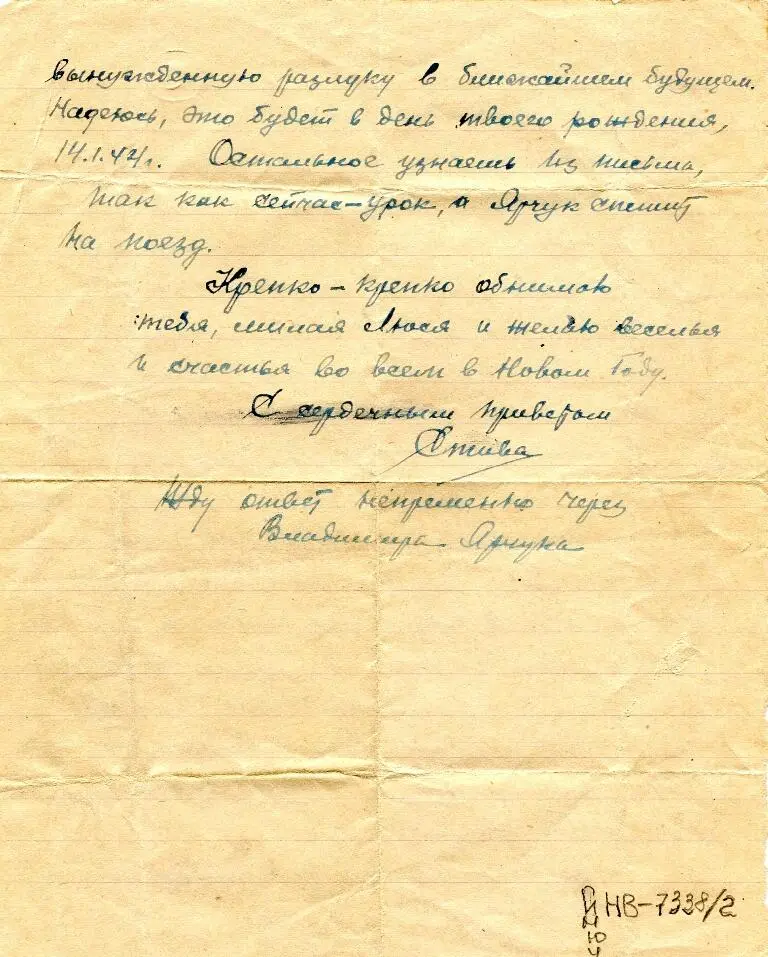 вынужденную разлуку в ближайшем будущем.
Надеюсь, это будет в день твоего рождения,
14.1.42г. Остальное узнаешь из письма,
так как сейчас-урок, а Ярчук спешит
на поезд.
Крепко-крепко обнимаю
тебя, милая Люся и желаю веселья
и счастья во всем в Новом Году.
С сердечным приветом
Стива
Жду ответ непременно через
Владимира Ярчука
НВ-7338/2